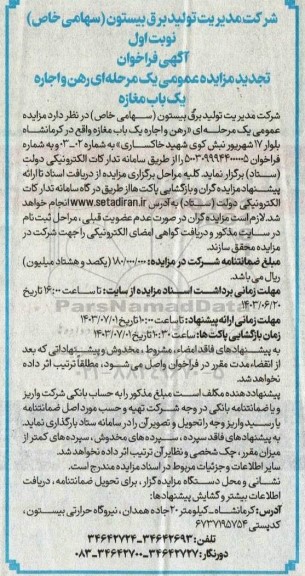 شرکت مدیریت تولید برق بیستون (سهامی خاص)
نوبت اول
آگهی فراخوان
تجدید مزایده عمومی یک مرحله‌ای رهن و اجاره
یک باب مغازه
شرکت مدیریت تولید برق بیستون (سهامی خاص) در نظر دارد مزایده
عمومی یک مرحله‌ای «رهن و اجاره یک باب مغازه واقع در کرمانشاه
بلوار ۱۷ شهریور نبش کوی شهید خاکساری» به شماره ۰۲-۰۳ به شماره
فراخوان ۵۰۰۳۰۹۹۹۴۴۰۰۰۰۰۵ را از طریق سامانه تدارکات الکترونیکی دولت
(ستاد) برگزار نماید. کلیه مراحل برگزاری مزایده از دریافت اسناد تا ارائه
پیشنهاد مزایده گران و بازگشایی پاکت‌ها از طریق درگاه سامانه تدارکات
الکترونیکی دولت (ستاد) به آدرس www.setadiran.ir انجام خواهد
شد. لازم است مزایده گران در صورت عدم عضویت قبلی، مراحل ثبت نام
در سایت مذکور و دریافت گواهی امضای الکترونیکی را جهت شرکت در
مزایده محقق سازند.
مبلغ ضمانتنامه شرکت در مزایده: ۱۸۰/۰۰۰/۰۰۰ (یکصد و هشتاد میلیون)
ریال می باشد.
مهلت زمانی برداشت اسناد مزایده از سایت: تا ساعت ۱۴:۰۰ تاریخ
۱۴۰۳/۰۶/۲۰
مهلت زمانی ارائه پیشنهاد: تا ساعت ۱۰:۰۰ تاریخ ۱۴۰۳/۰۷/۰۱
زمان بازگشایی پاکت ها: ساعت ۱۰:۳۰ تاریخ ۱۴۰۳/۰۷/۰۱
به پیشنهادهای فاقد امضاء، مشروط، مخدوش و پیشنهاداتی که بعد
از انقضاء مدت مقرر در فراخوان واصل می‌شود، مطلقاً ترتیب اثر داده
نخواهد شد.
پیشنهاد دهنده مکلف است مبلغ مذکور را به حساب بانکی شرکت واریز
و یا ضمانتنامه بانکی در وجه شرکت تهیه و حسب مورد اصل ضمانتنامه
یا رسید واریز وجه را تحویل و تصویر آن را در سامانه ستاد بارگذاری نماید.
به پیشنهاد های فاقد سپرده، سپرده های مخدوش، سپرده های کمتر از
میزان مقرر، چک شخصی و نظایر آن ترتیب اثر داده نخواهد شد.
سایر اطلاعات و جزئیات مربوط در اسناد مزایده مندرج است.
نشانی و محل دستگاه مزایده گزار، برای تحویل ضمانتنامه، دریافت
اطلاعات بیشتر و گشایش پیشنهادها:
آدرس: کرمانشاه-کیلومتر ۲۰ جاده همدان، نیروگاه حرارتی بیستون،
کدپستی ۶۷۳۷۱۹۵۷۵۴
تلفن: ۳۴۶۴۲۶۹۳-۳۴۶۴۲۷۲۴
دورنگار: ۳۴۶۴۲۷۲۷-۳۴۶۴۲۷۰۰-۰۸۳